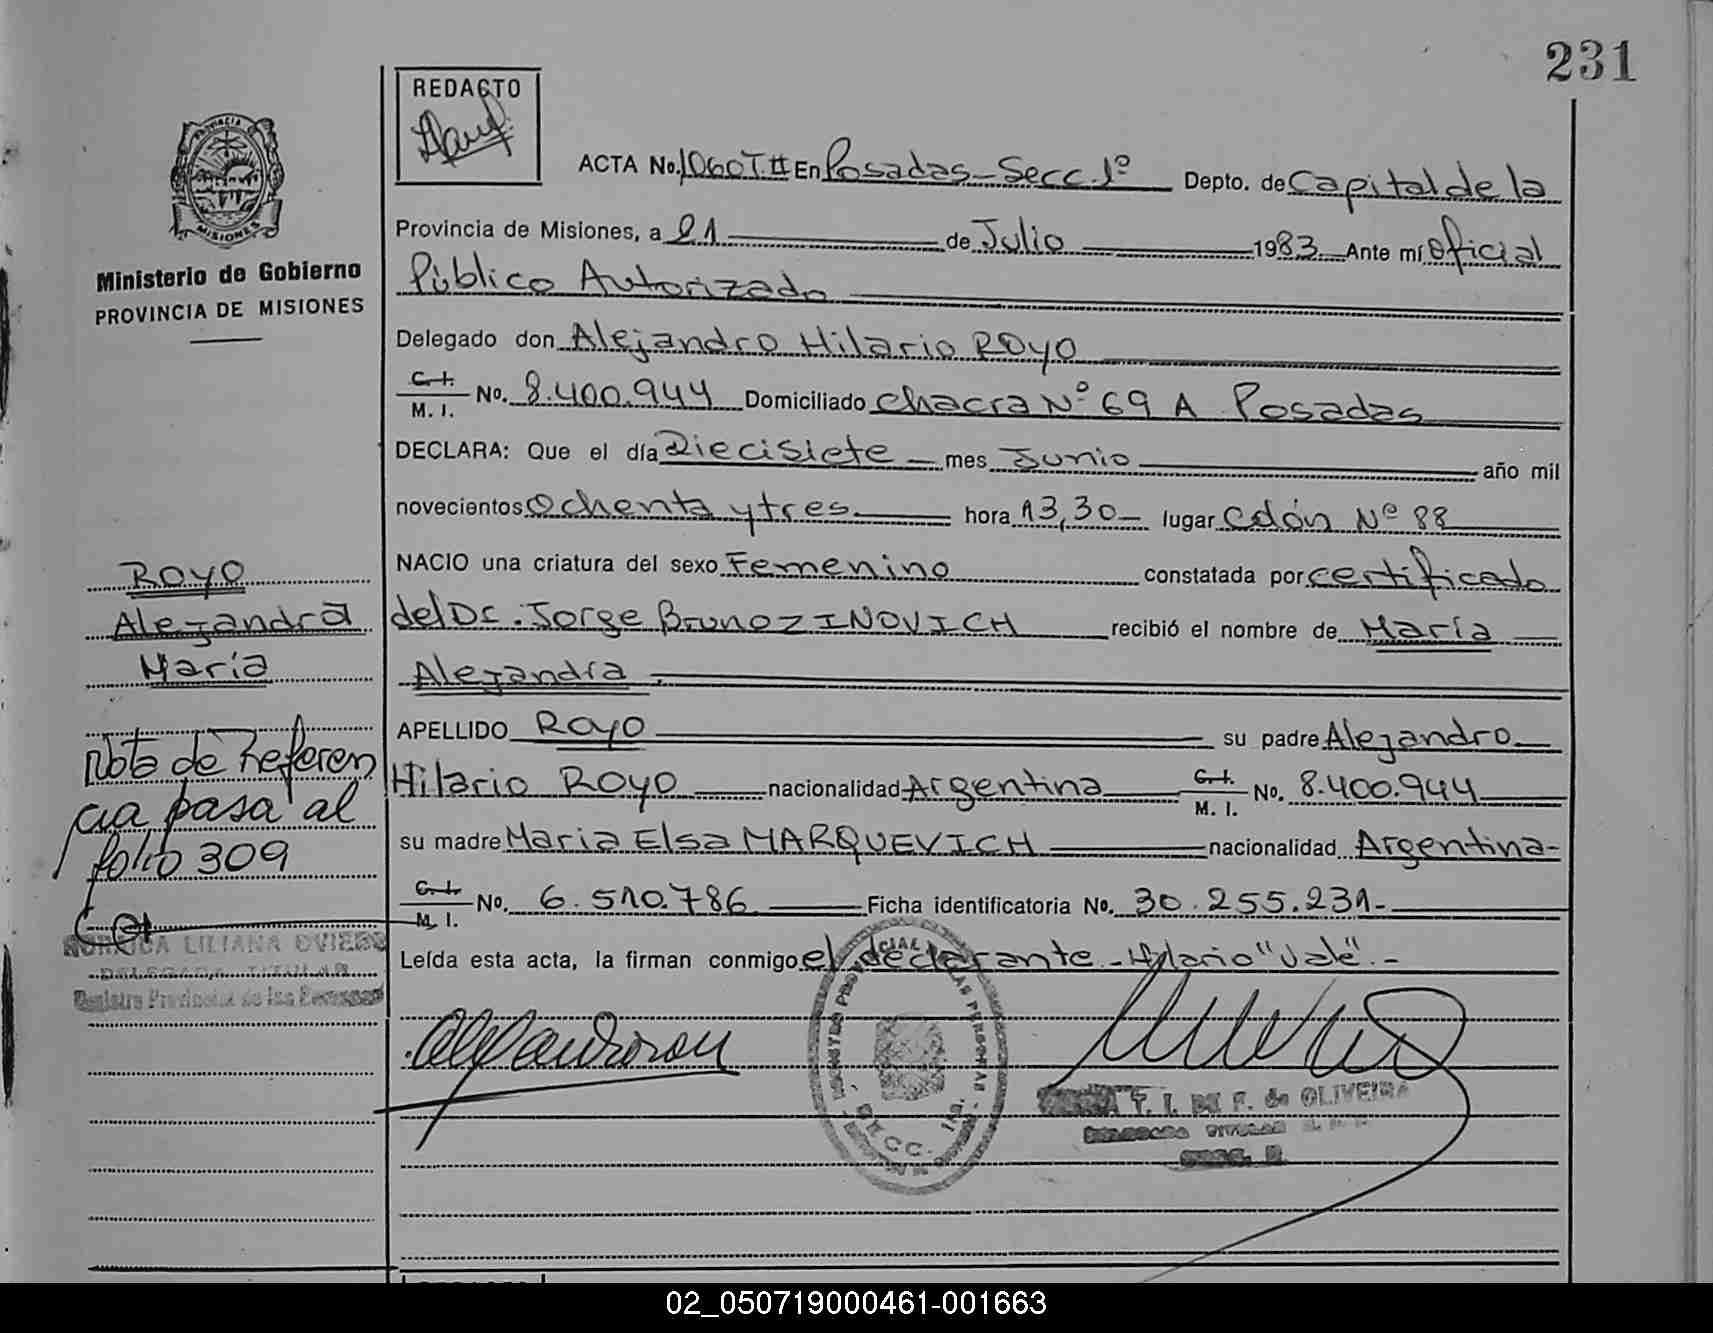 231
REDACTO
ACTA No. 1060 T. II En Posadas - Secc. 1º Depto. de Capital de la
PROVINCIA
MISIONES
Provincia de Misiones, a 21 de Julio 1983. Ante mí oficial
Ministerio de Gobierno
PROVINCIA DE MISIONES
Público Autorizado
Delegado don Alejandro Hilario ROYO
C. I.
M. I. No. 8.400.944 Domiciliado chacra Nº 69 A Posadas
DECLARA: Que el día Diecisiete mes Junio año mil
novecientos ochenta y tres. hora 13,30 lugar Colón Nº 88
NACIO una criatura del sexo Femenino constatada por certificado
del Dr. Jorge Bruno ZINOVICH recibió el nombre de María
Alejandra.
APELLIDO ROYO su padre Alejandro
Hilario ROYO nacionalidad Argentina C. I. M. I. No. 8.400.944
su madre María Elsa MARQUEVICH nacionalidad Argentina-
C. I.
M. I. No. 6.510.786 Ficha identificatoria No. 30.255.231-
Leída esta acta, la firman conmigo el declarante - Hilario "Vale".-
ROYO
Alejandra
María
Nota de Referen
cia pasa al
folio 309
LILIANA OVIEDO
DELEGADA TITULAR
Registro Provincial de las Personas
T. I. DE F. de OLIVEIRA
DELEGADA TITULAR
02_050719000461-001663